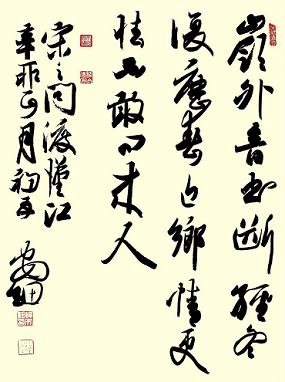 嶺外音書断經冬
復歷春近鄉情更
怯不敢问来人
宋之问渡漢江
辛卯正月初五